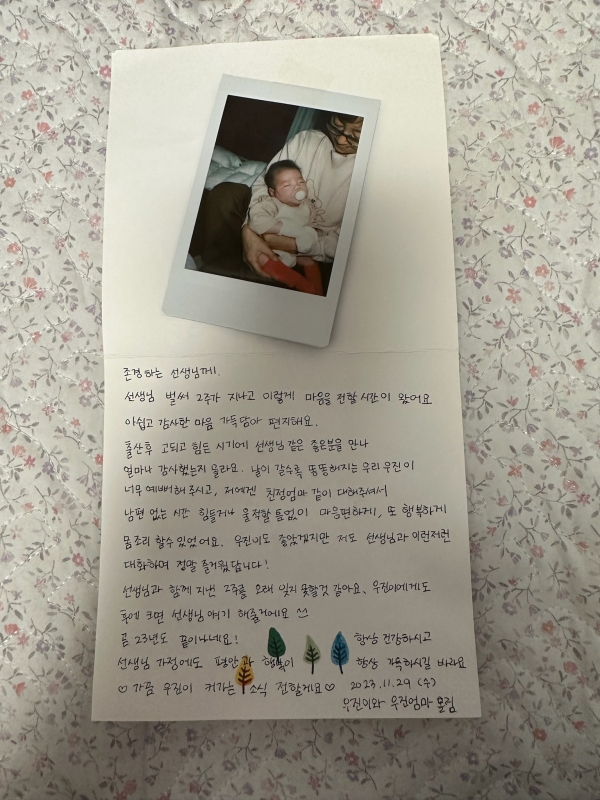 존경하는 선생님께!
선생님 벌써 2주가 지나고 이렇게 마음을 전할 시간이 왔어요
아쉽고 감사한 마음 가득담아 편지해요.
출산후 고되고 힘든 시기에 선생님 같은 좋은분을 만나
얼마나 감사했는지 몰라요. 날이 갈수록 똥똥해지는 우리 우진이
너무 예뻐해 주시고, 저에겐 친정엄마 같이 대해주셔서
남편 없는 시간 힘들거나 우울할 틈없이 마음편하게, 또 행복하게
몸조리 할수 있었어요. 우진이도 좋았겠지만 저도 선생님과 이런저런
대화하며 정말 즐거웠답니다!
선생님과 함께 지낸 2주를 오래 잊지 못할것 같아요. 우진이에게도
후에 크면 선생님 얘기 해줄거에요
곧 23년도 끝이나네요! 항상 건강하시고
선생님 가정에도 평안과 행복이 항상 가득하시길 바라요
♡ 가끔 우진이 커가는 소식 전할게요♡ 2023.11.29 (수)
우진이와 우진엄마 올림